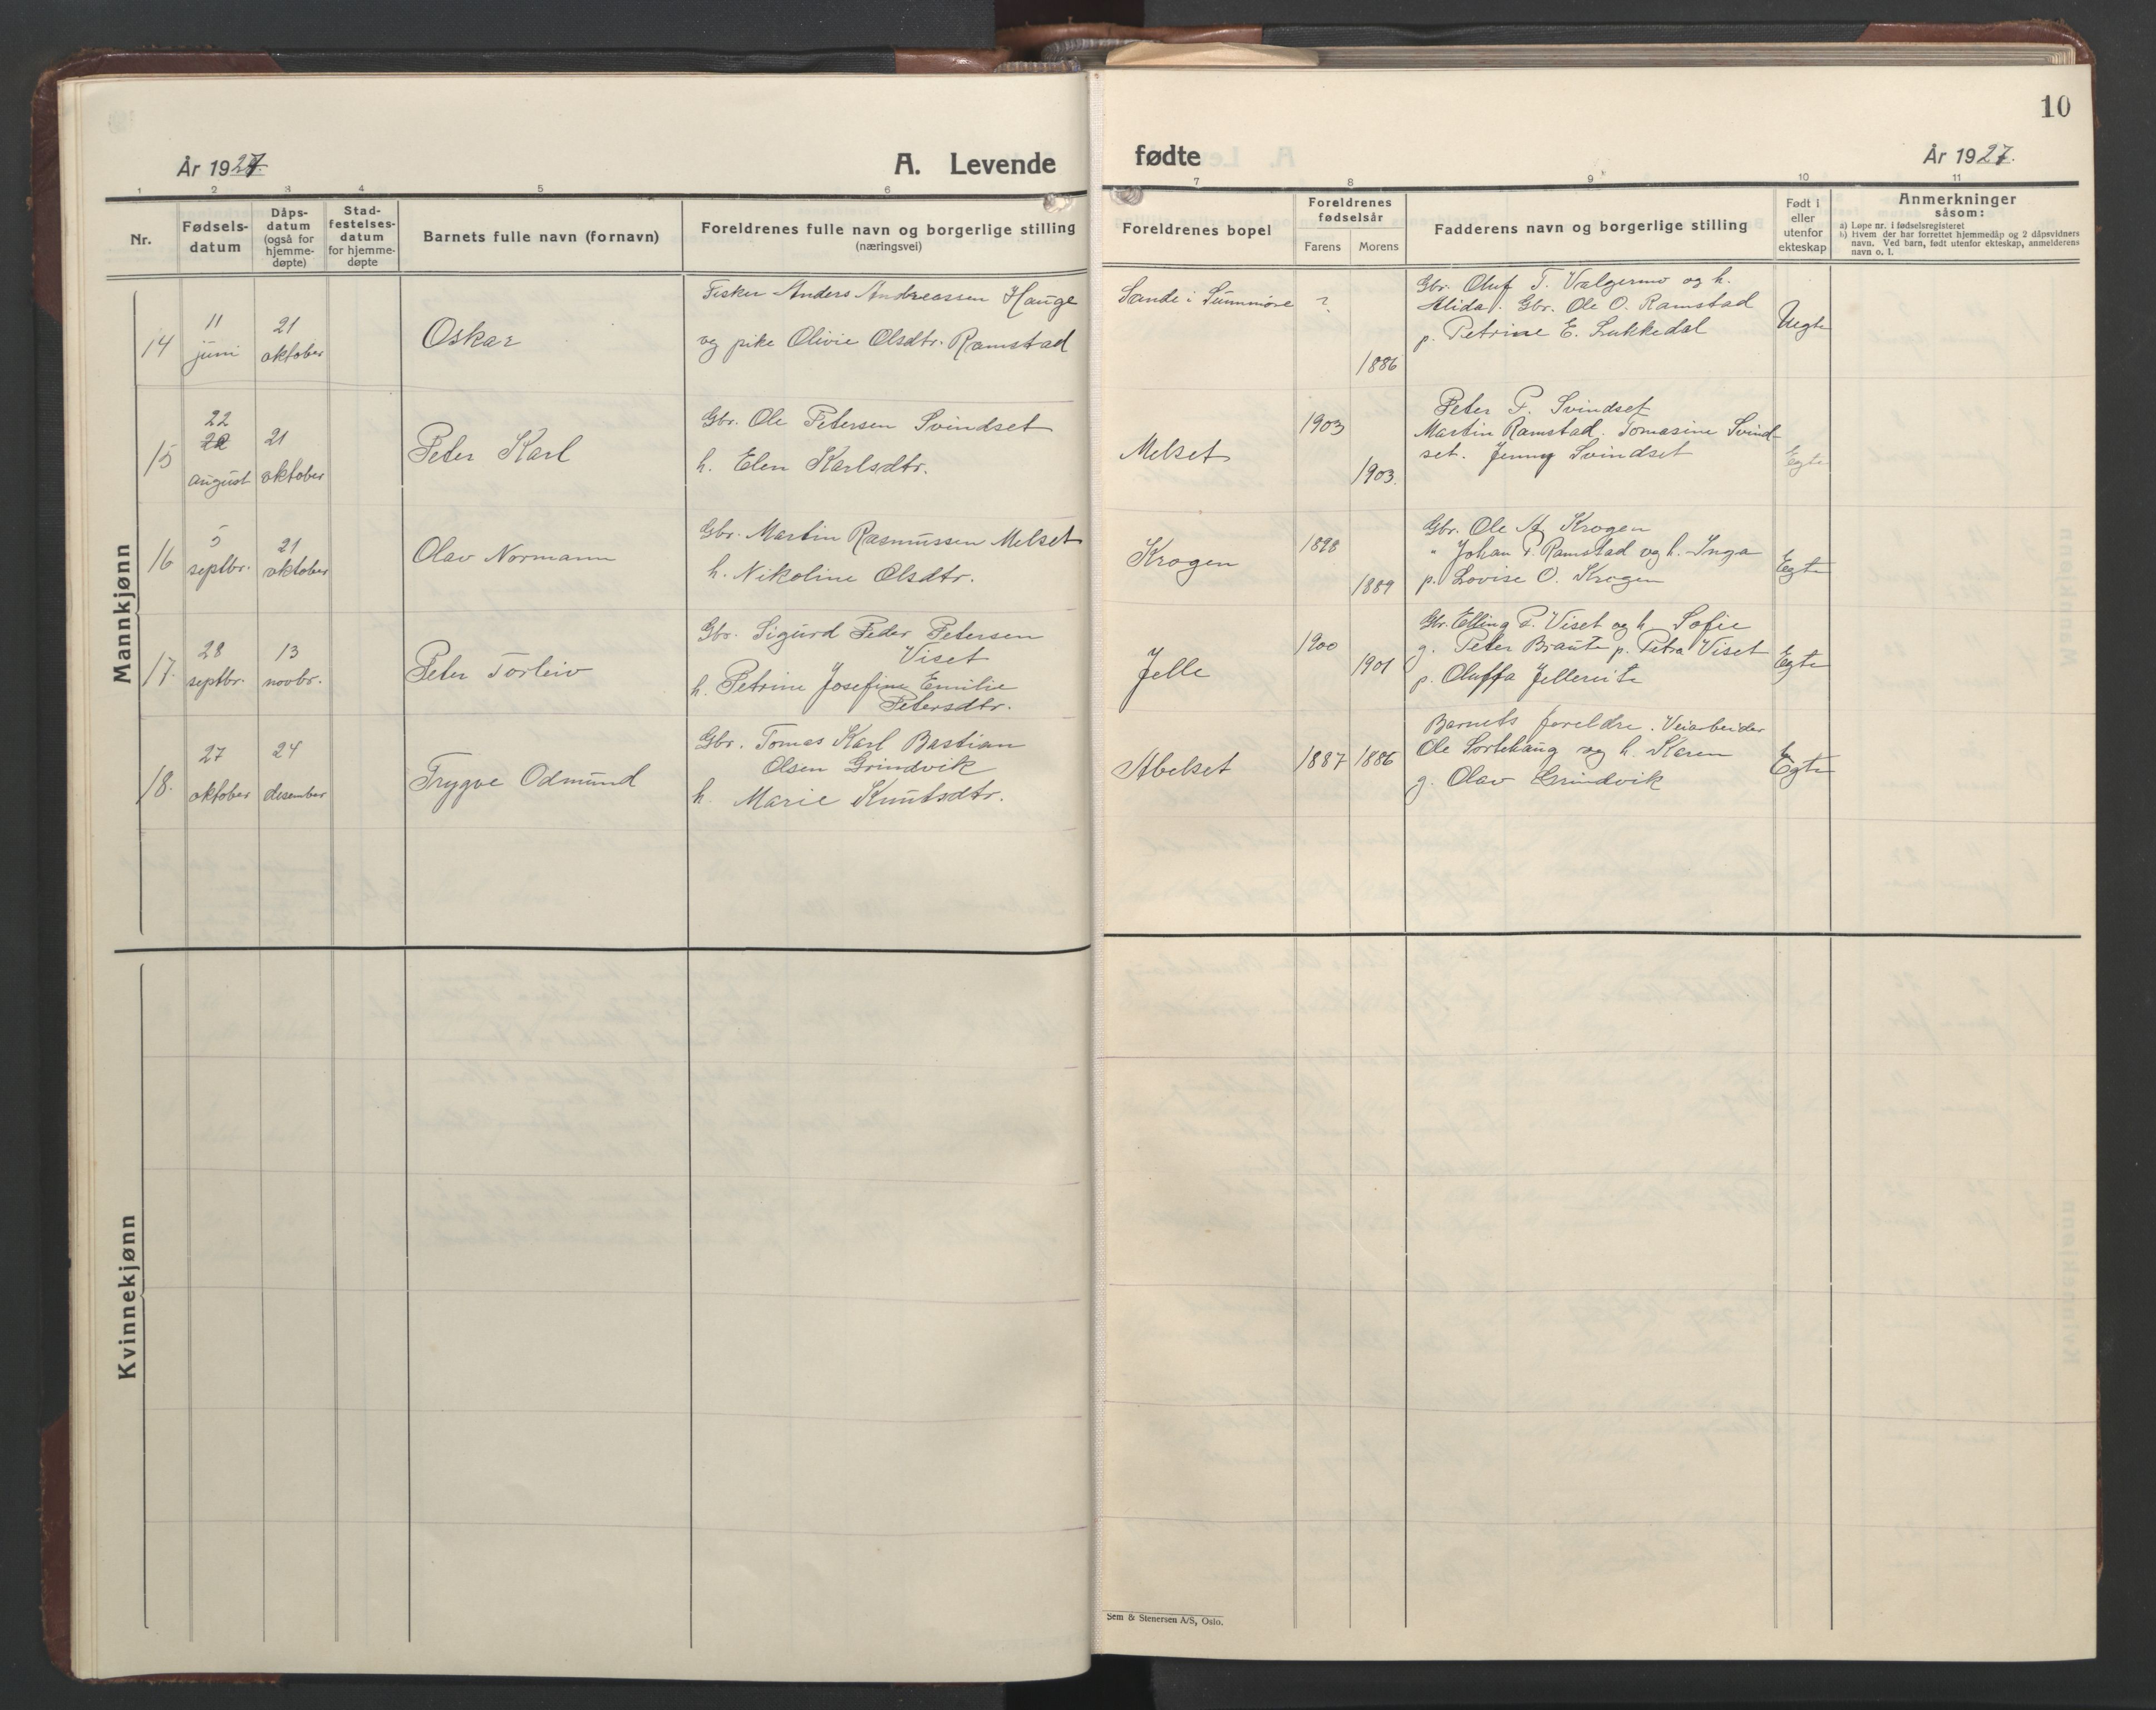 10
År 1927.
A. Levende
fødte
År 1927.
1 2 3 4 5 6 7 8 9 10 11
Nr.
Fødsels-
datum
Dåps-
datum
(også for
hjemme-
døpte)
Stad-
festelses-
datum
for hjemme-
døpte
Barnets fulle navn (fornavn)
Foreldrenes fulle navn og borgerlige stilling
(næringsvei)
Foreldrenes bopel
Foreldrenes
fødselsår
Farens
Morens
Fadderens navn og borgerlige stilling
Født i
eller
utenfor
ekteskap
Anmerkninger
såsom:
a) Løpe nr. i fødselsregisteret
b) Hvem der har forrettet hjemmedåp og 2 dåpsvidners
navn. Ved barn, født utenfor ekteskap, anmelderens
navn o. l.
Mannkjønn
14
11
juni
21
oktober
Oskar
Fisker Anders Andreassen Hauge
og pike Olivie Olsdtr. Ramstad
Sande i Sunnmøre
?
1886
Gbr. Oluf T. Valgermo og h.
Alida. Gbr. Ole O. Ramstad
p. Petrine E. Lukkedal
Uegte
15
22
august
21
oktober
Peter Karl
Gbr. Ole Petersen Svindset
h. Elen Karlsdtr.
Melset
1903
1903.
Peter P. Svindset
Martin Ramstad. Tomasine Svind-
set. Jenny Svindset
Egte
16
5
septbr.
21
oktober
Olav Normann
Gbr. Martin Rasmussen Melset
h. Nikoline Olsdtr.
Krogen
1898
1889
Gbr. Ole A. Krogen
" Johan P. Ramstad og h. Inga
p. Lovise O. Krogen
Egte
17.
28
septbr.
13
novbr.
Peter Torleiv
Gbr. Sigurd Peder Petersen
Viset
h. Petrine Josefine Emilie
Petersdtr.
Jelle
1900
1901
Gbr. Elling P. Viset og h. Sofie
g. Peter Braute p. Petra Viset
p. Oluffa Jelleruite
Egte
18.
27
oktober
24
desember
Trygve Odmund
Gbr. Tomas Karl Bastian
Olsen Grindvik
h. Marie Knutsdtr.
Abelset
1887
1886
Barnets foreldre. Veiarbeider
Ole Sortehaug og h. Karen
g. Olav Grindvik
Egte
Kvinnekjønn
Sem & Stenersen A/S, Oslo.